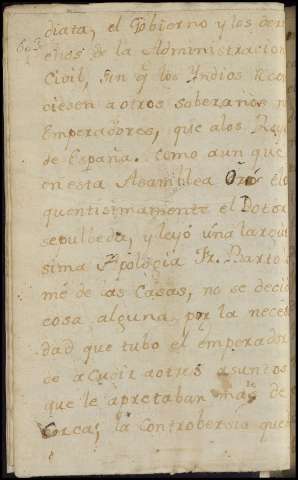 diata, el Gobierno y los dere
chos de la Administracion
Civil, sin q̃ los Yndios Reco
ciesen a otros soberanos n
Emperadores, que a los Reye
de España. como aun que
en esta Asamblea Oró elo
quentisimamente el Dotor
sepulbeda, y leyó una larguis
sima Apologia Fr. Barto
mé de las Casas, no se decid
cosa alguna, por la neces
dad que tubo el emperador
de acudir a otros asuntos
que le apretaban mas de
cerca; la Controbersia que